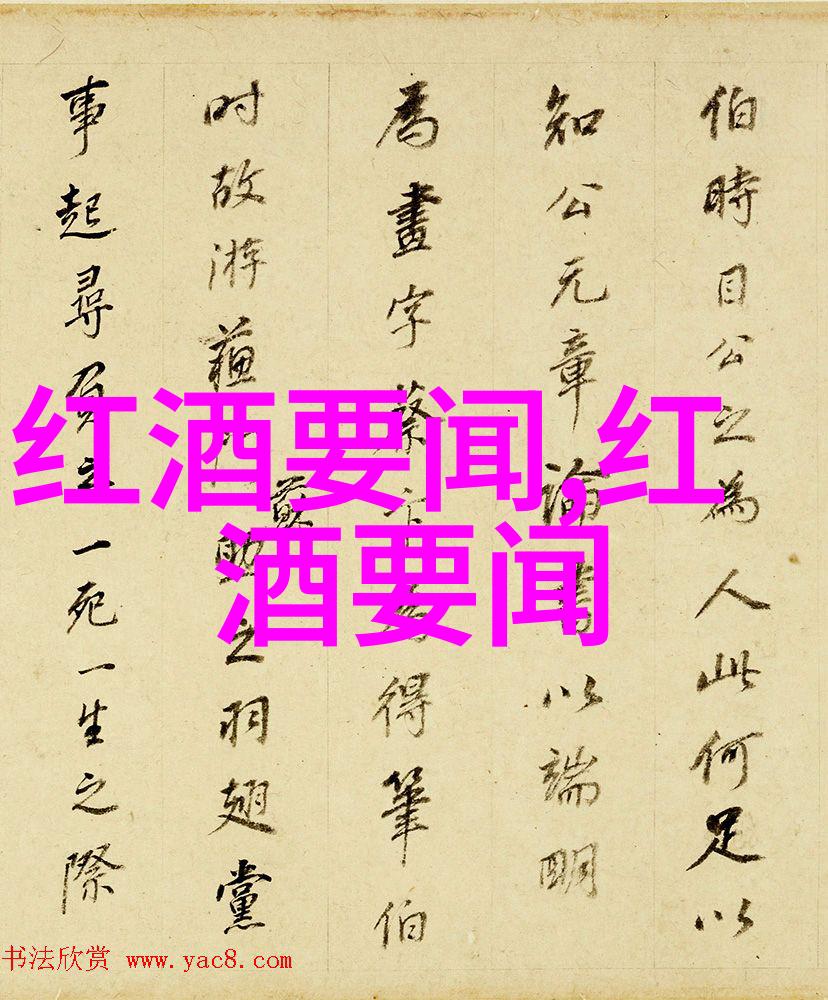 伯時目公之為人此何足以
知公元章論書以端明
為畫字蔡卞為得筆伯
时故游蘓蘇助之羽翅黨
事起尋負之一死一生之際
红酒要闻,红
酒要闻
书法欣赏 www.yac8.com